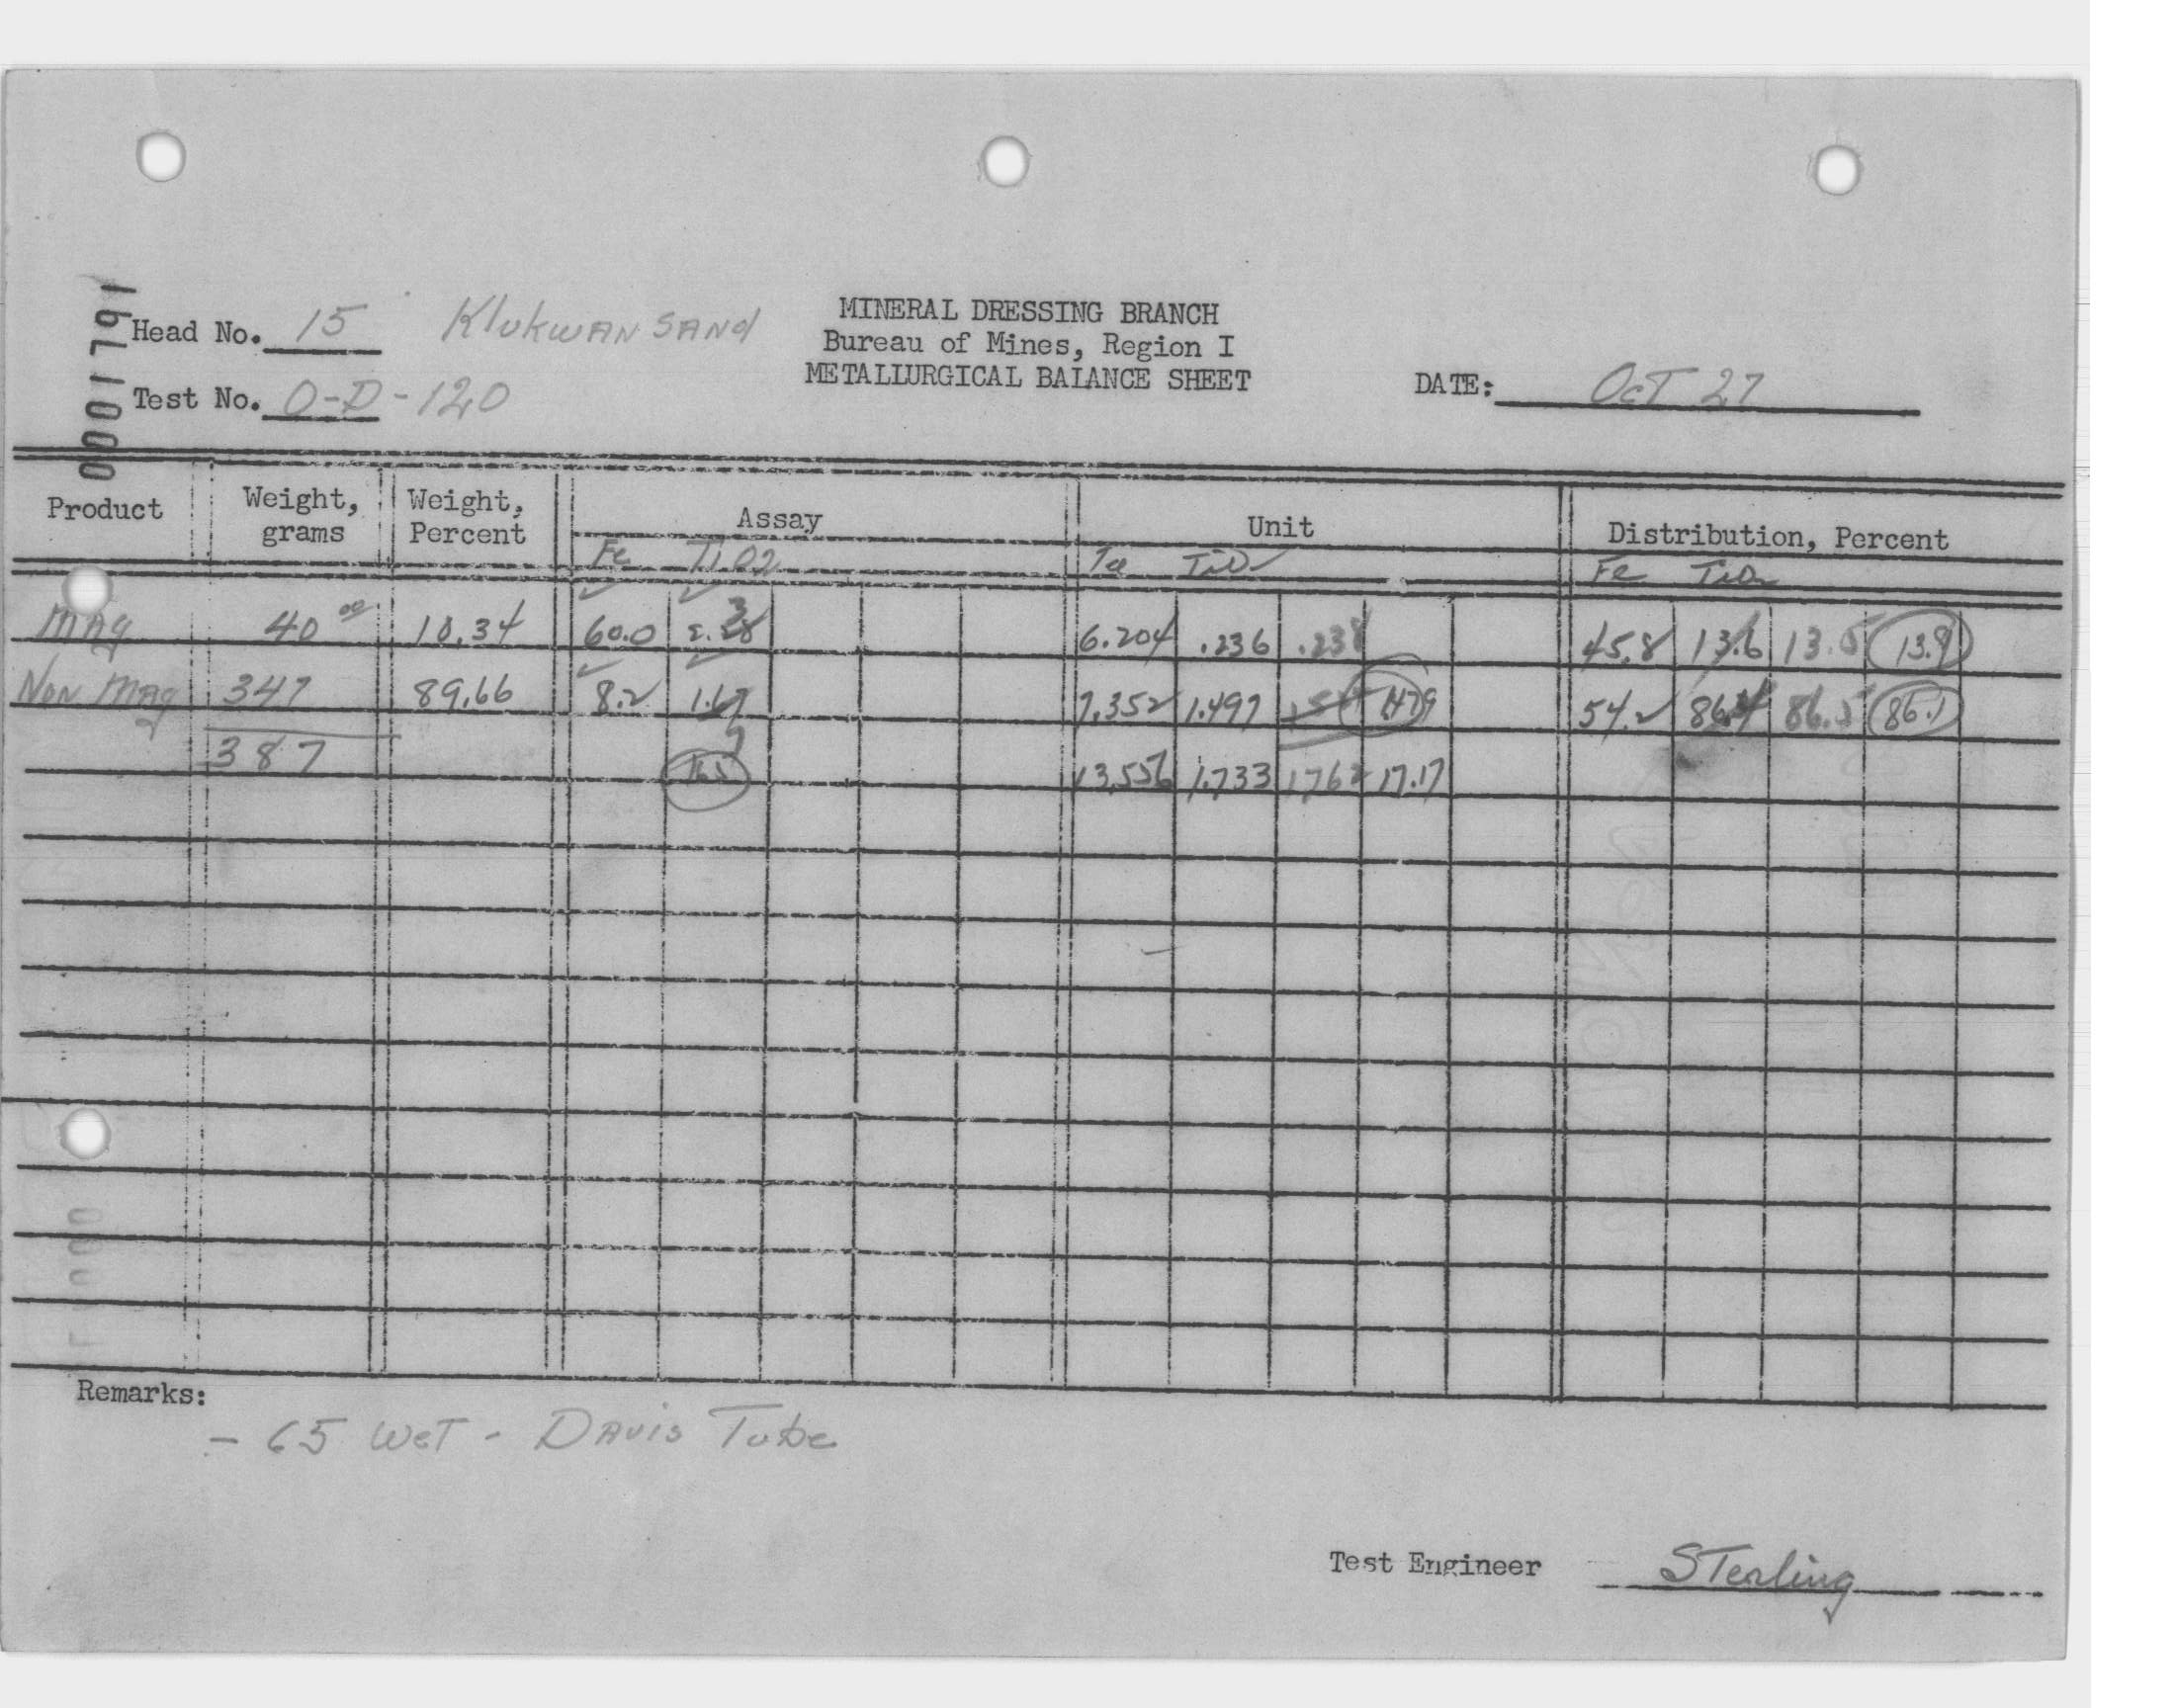 0001791
Head No. 15 Klukwan Sand
Test No. O-D-120
MINERAL DRESSING BRANCH
Bureau of Mines, Region I
METALLURGICAL BALANCE SHEET
DATE: Oct 27
Product Weight, grams Weight, Percent Assay Unit Distribution, Percent
Fe TiO2 Fe TiO2 Fe TiO2
Mag 40 00 10.34 60.0 6.204 .236 .238 45.8 13.6 13.5 13.9
Non Mag 347 89.66 8.2 1.67 7.352 1.497 1.479 54.2 86.4 86.5 86.1
387 1.65 13.556 1.733 1.762 17.17
Remarks:
- 65 Wet - Davis Tube
Test Engineer Sterling